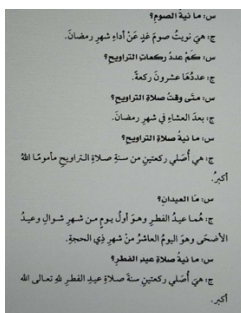 س: ما نية الصوم؟
ج: هي نويتُ صومَ غدٍ عنْ أداءِ شهرِ رمضانَ.
س: كَمْ عددُ ركعاتِ التراويحِ؟
ج: عددُهَا عشرونَ ركعةً.
س: متَى وقتُ صلاةِ التراويحِ؟
ج: بعدَ العشاءِ في شهرِ رمضانَ.
س: ما نيةُ صلاةِ التراويحِ؟
ج: هي أُصَلي ركعتينِ من سنةِ صلاةِ التراويحِ مأمومًا اللهُ
أكبرُ.
س: مَا العيدانِ؟
ج: هُما عيدُ الفطرِ وهوَ أولُ يومٍ من شهرِ شوالٍ وعيدُ
الأضحَى وهوَ اليومُ العاشرُ منْ شهرِ ذِي الحجةِ.
س: ما نيةُ صلاةِ عيدِ الفطرِ؟
ج: هيَ أُصَلي ركعتينِ سنةَ صلاةِ عيدِ الفطرِ للهِ تعالى الله
أكبر.